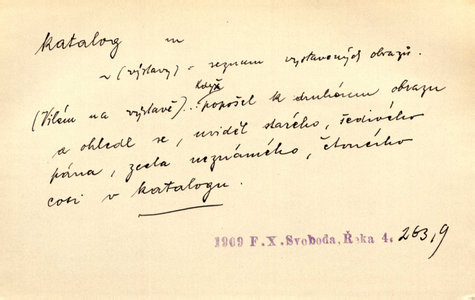 katalog m
~ (výstavy) = seznam vystavených obrazů.
(Vilém na výstavě).. Když popošel k druhému obrazu
a ohledl se, uviděl starého, šedivého
pána, zcela neznámého, čtoucího
cosi v katalogu.
1909 F. X. Svoboda, Řeka 4. 263,9